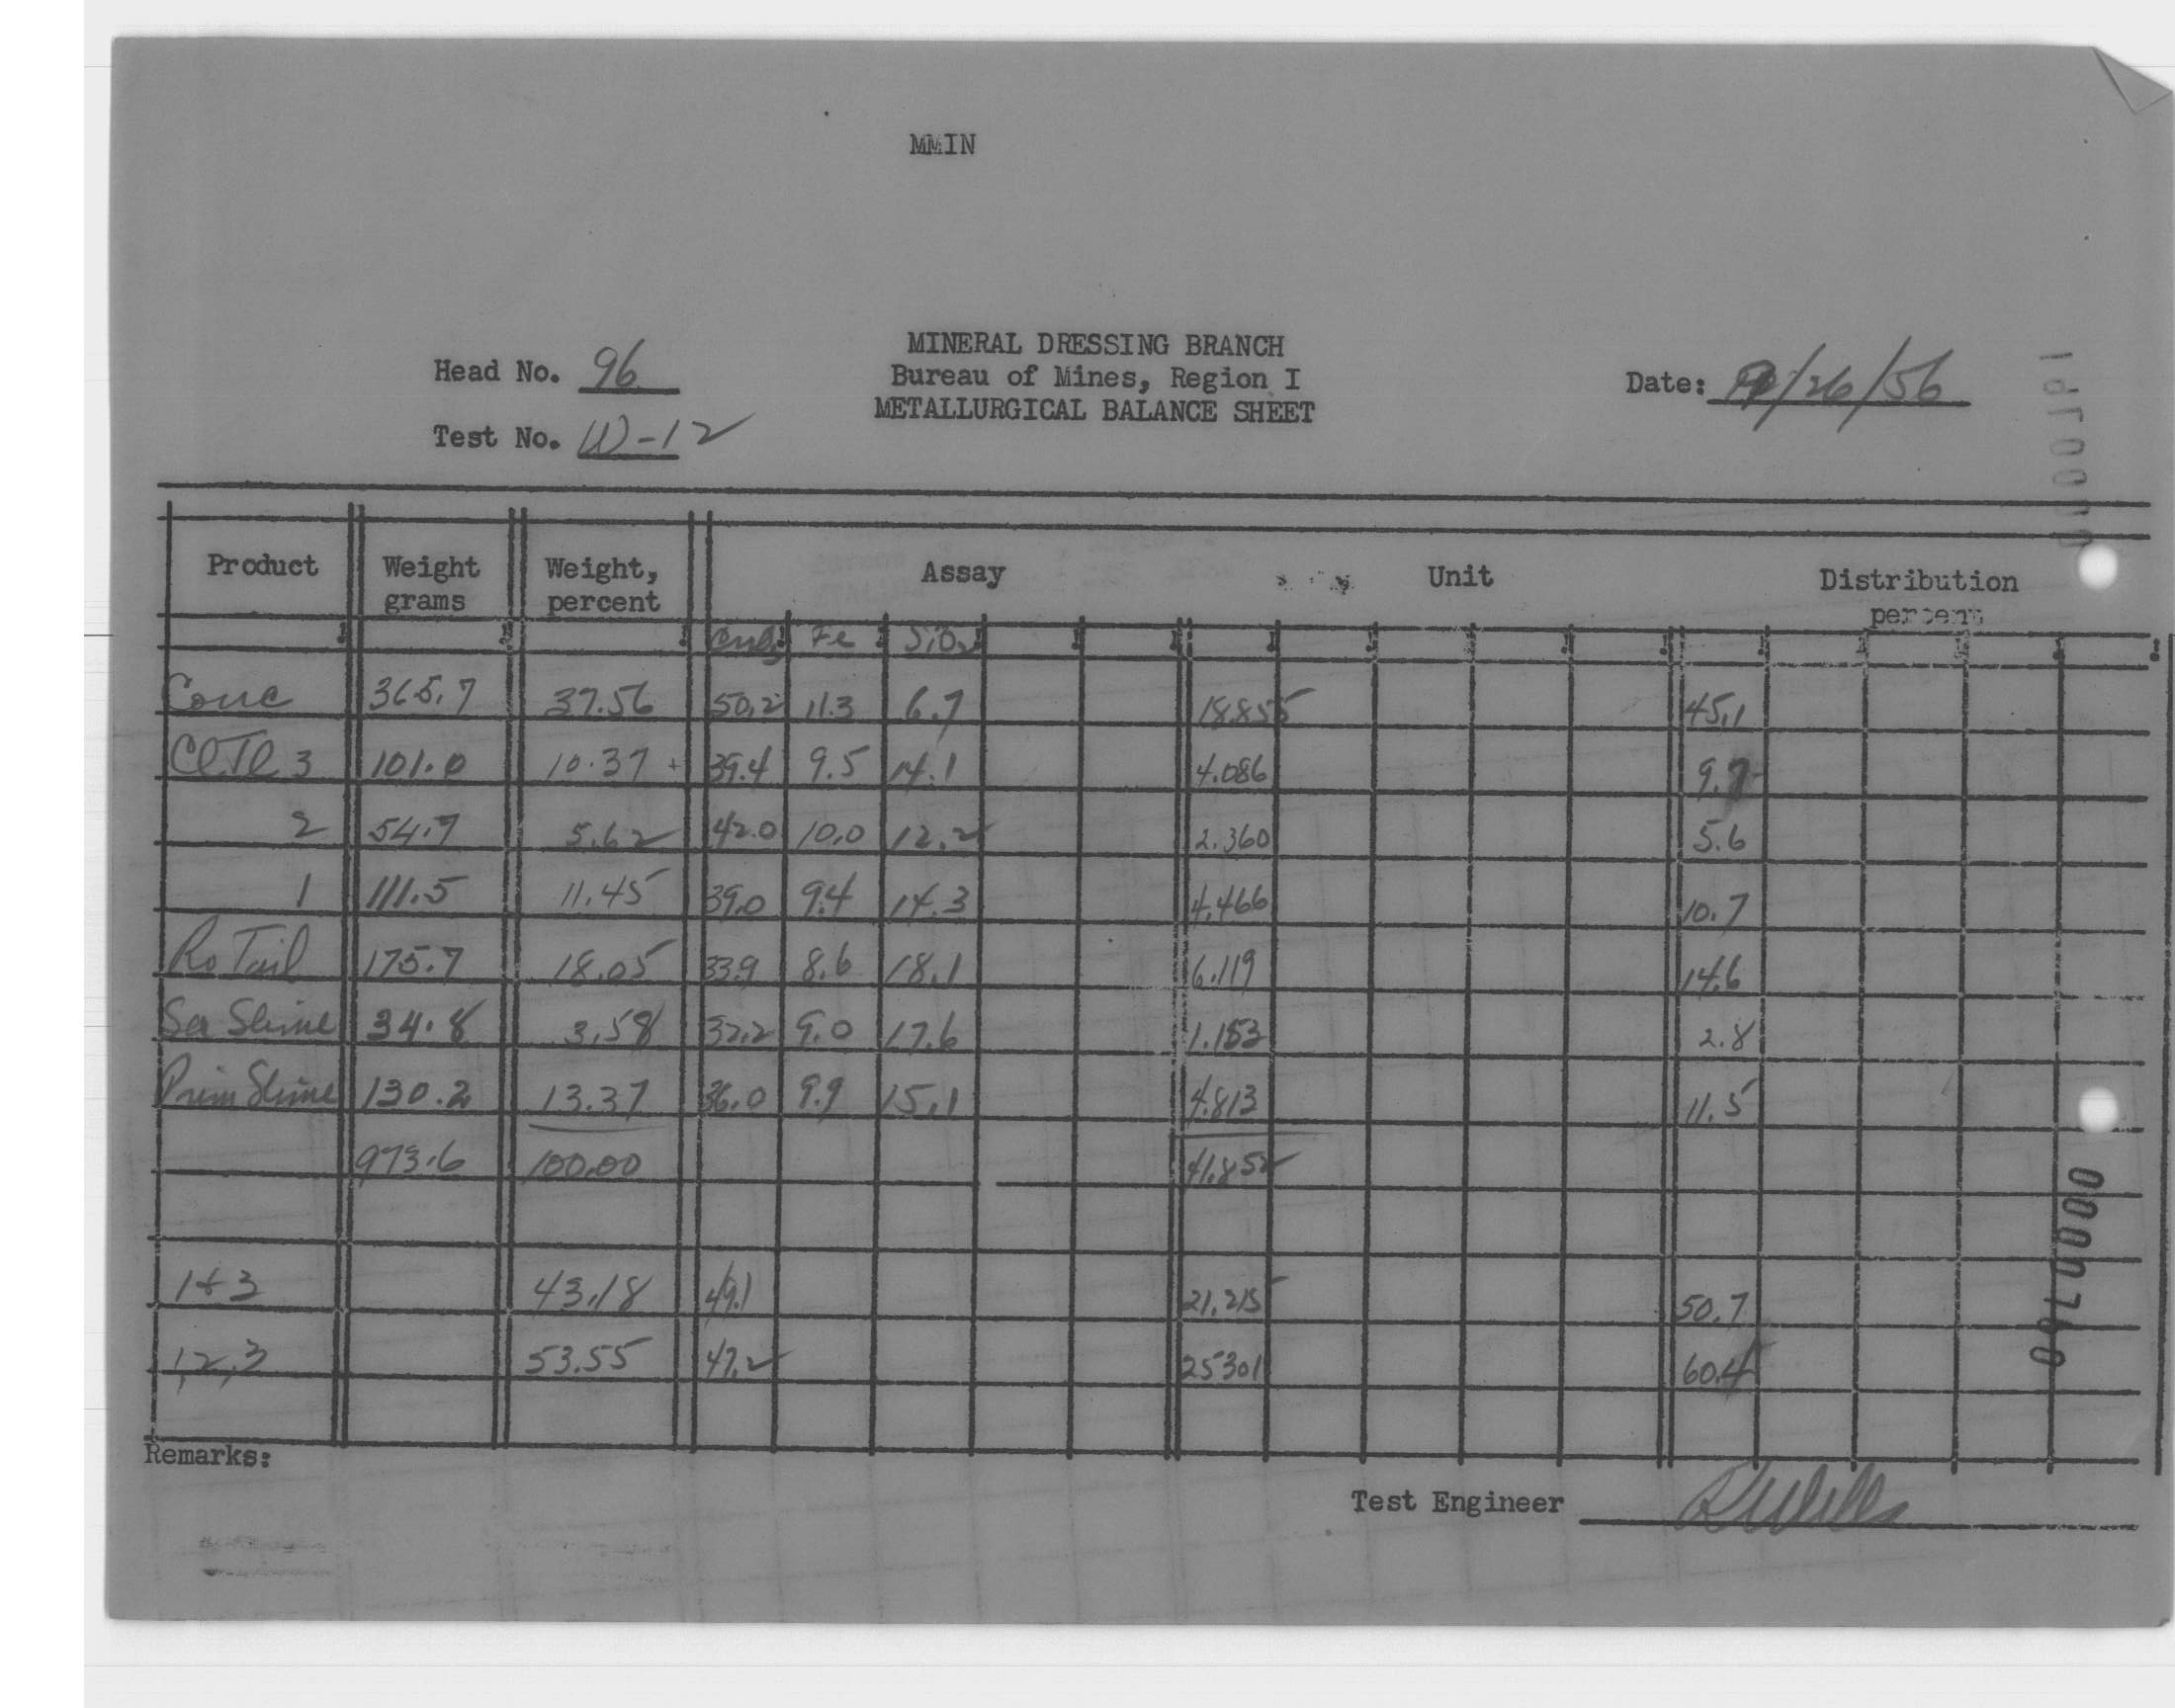 MMIN
MINERAL DRESSING BRANCH
Head No. 96 Bureau of Mines, Region I Date: /26/56
METALLURGICAL BALANCE SHEET
Test No. W-12
Product Weight grams Weight, percent Assay Unit Distribution percent
Fe SiO2
Conc 365.7 37.56 50.2 11.3 6.7 18.855 45.1
Cl Tl 3 101.0 10.37 + 39.4 9.5 14.1 4.086 9.7
2 54.7 5.62 42.0 10.0 12.2 2.360 5.6
1 111.5 11.45 39.0 9.4 14.3 4.466 10.7
Ro Tail 175.7 18.05 33.9 8.6 18.1 6.119 14.6
Sec Slime 34.8 3.58 32.2 9.0 17.6 1.153 2.8
Prim Slime 130.2 13.37 36.0 9.9 15.1 4.813 11.5
973.6 100.00 41.852
1+3 43.18 49.1 21.215 50.7
1,2,3 53.55 47.2 25301 60.4
Remarks:
Test Engineer